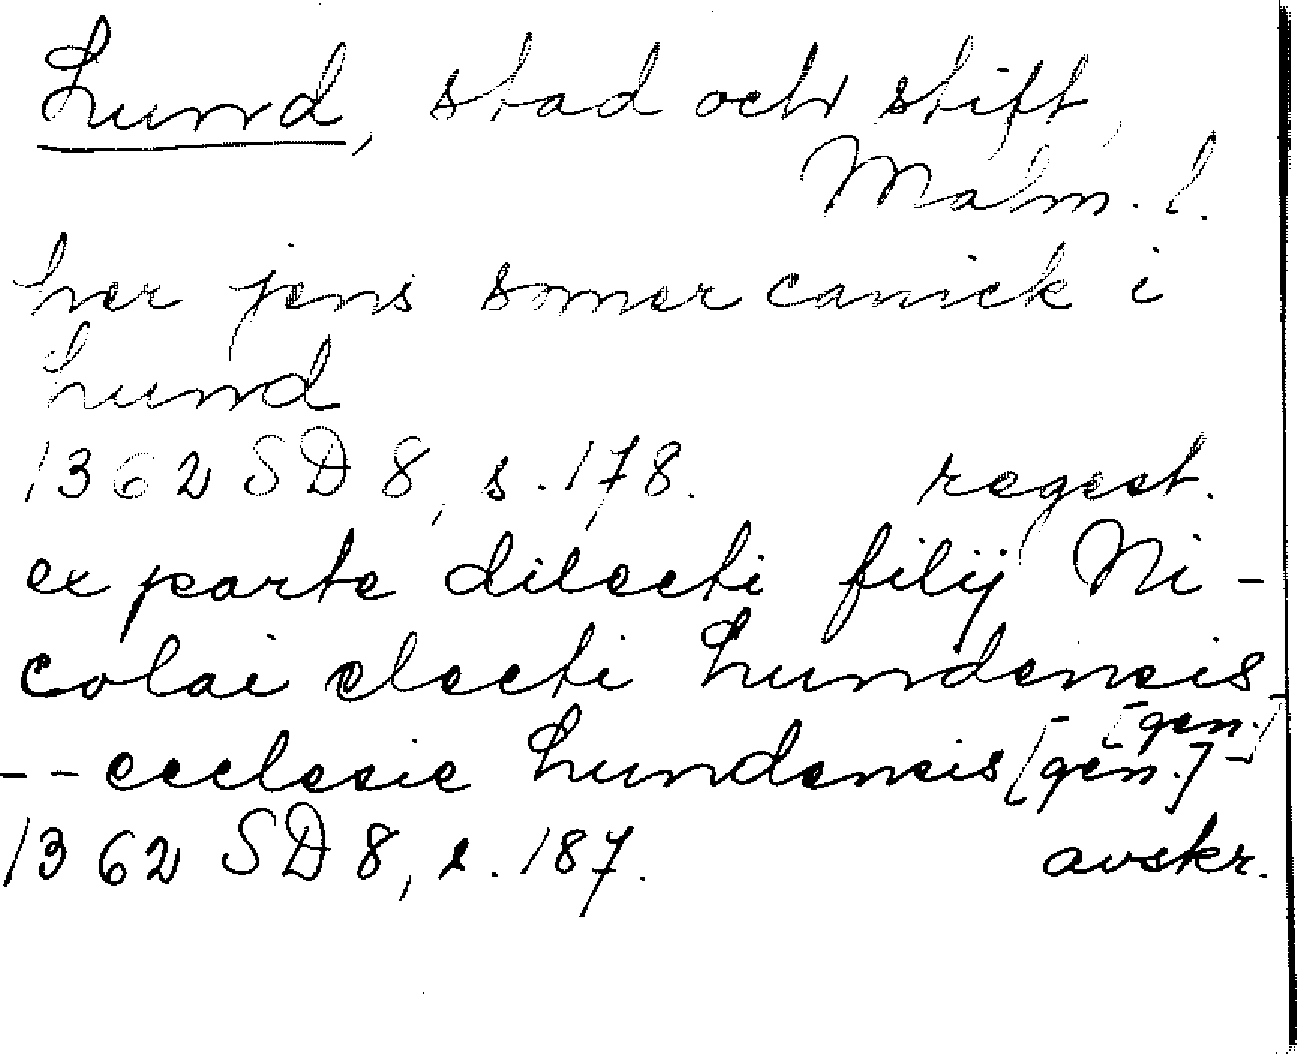 Lund, stad och stift,
Malm. l.
her jens somer canick i
Lund
1362 SD 8, s. 178. regest.
ex parte dilecti filij Ni-
colai electi Lundensis
[gen.]
-- ecclesie Lundensis [gen.] -
1362 SD 8, s. 187. avskr.